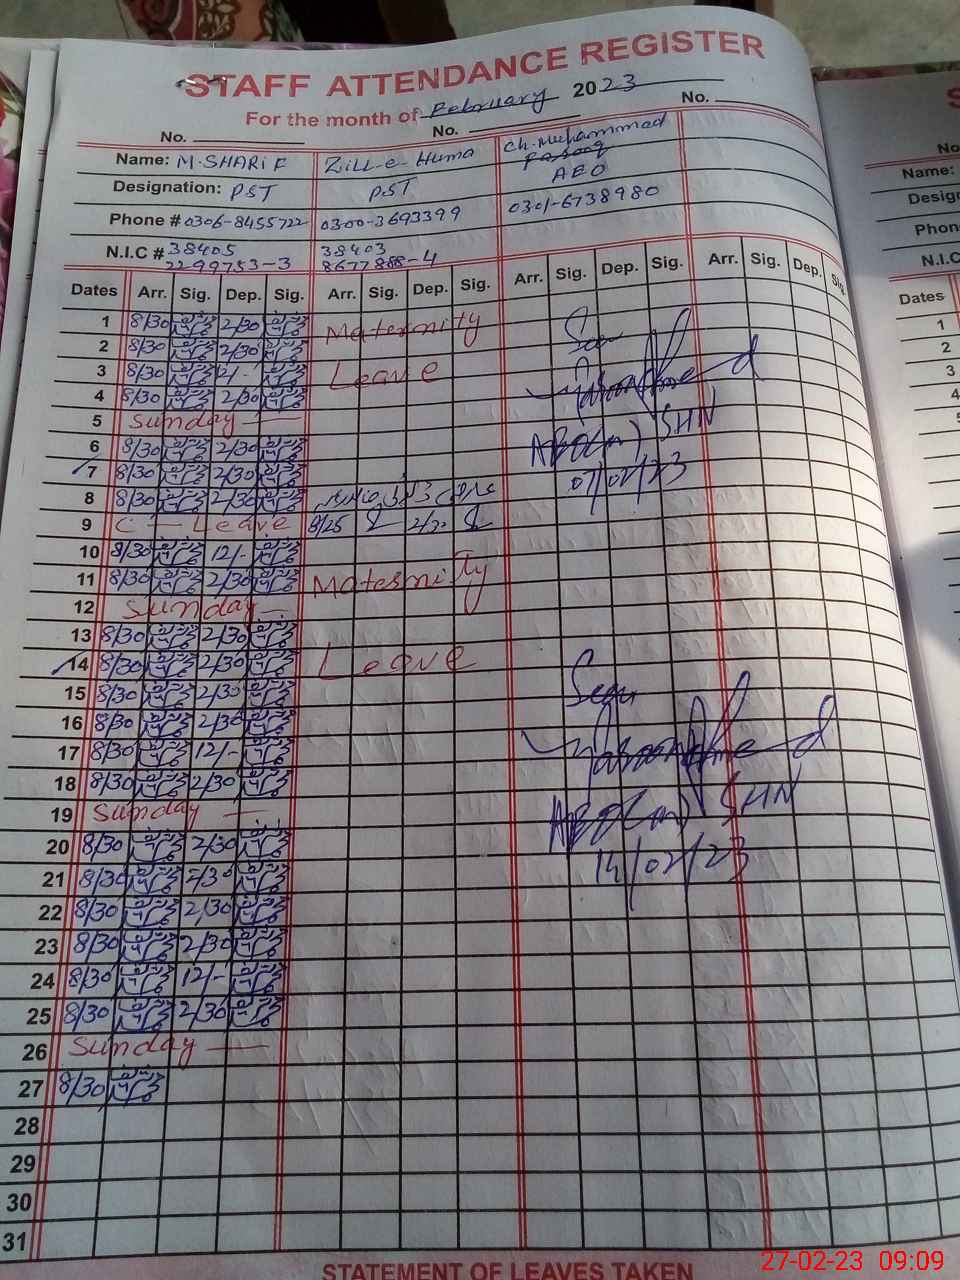 STAFF ATTENDANCE REGISTER
For the month of February 2023
No. No. No.
Name: M.SHARIF Zill-e-Huma Ch.Muhammad Farooq
Designation: PST PST AEO
Phone # 0306-8455722 0300-3693399 0301-6738980
N.I.C # 38405 38403
2299753-3 8677888-4
Dates Arr. Sig. Dep. Sig. Arr. Sig. Dep. Sig. Arr. Sig. Dep. Sig. Arr. Sig. Dep. Sig.
1 8/30 2/30 Maternity Seen
2 8/30 2/30
3 8/30 12/- Leave
4 8/30 2/30
5 Sunday
6 8/30 2/30 AEO(m) SHN
7 8/30 2/30 07/02/23
8 8/30 2/30
9 C - Leave 8/25 2/30
10 8/30 12/-
11 8/30 2/30 Maternity
12 Sunday
13 8/30 2/30
14 8/30 2/30 Leave
15 8/30 2/30 Seen
16 8/30 2/30
17 8/30 12/-
18 8/30 2/30
19 Sunday AEO(m) SHN
20 8/30 2/30
21 8/30 2/30 14/02/23
22 8/30 2/30
23 8/30 2/30
24 8/30 12/-
25 8/30 2/30
26 Sunday
27 8/30
28
29
30
31
STATEMENT OF LEAVES TAKEN
S
No
Name:
Desig
Phon
N.I.C
Dates
1
2
3
4
5
27-02-23 09:09